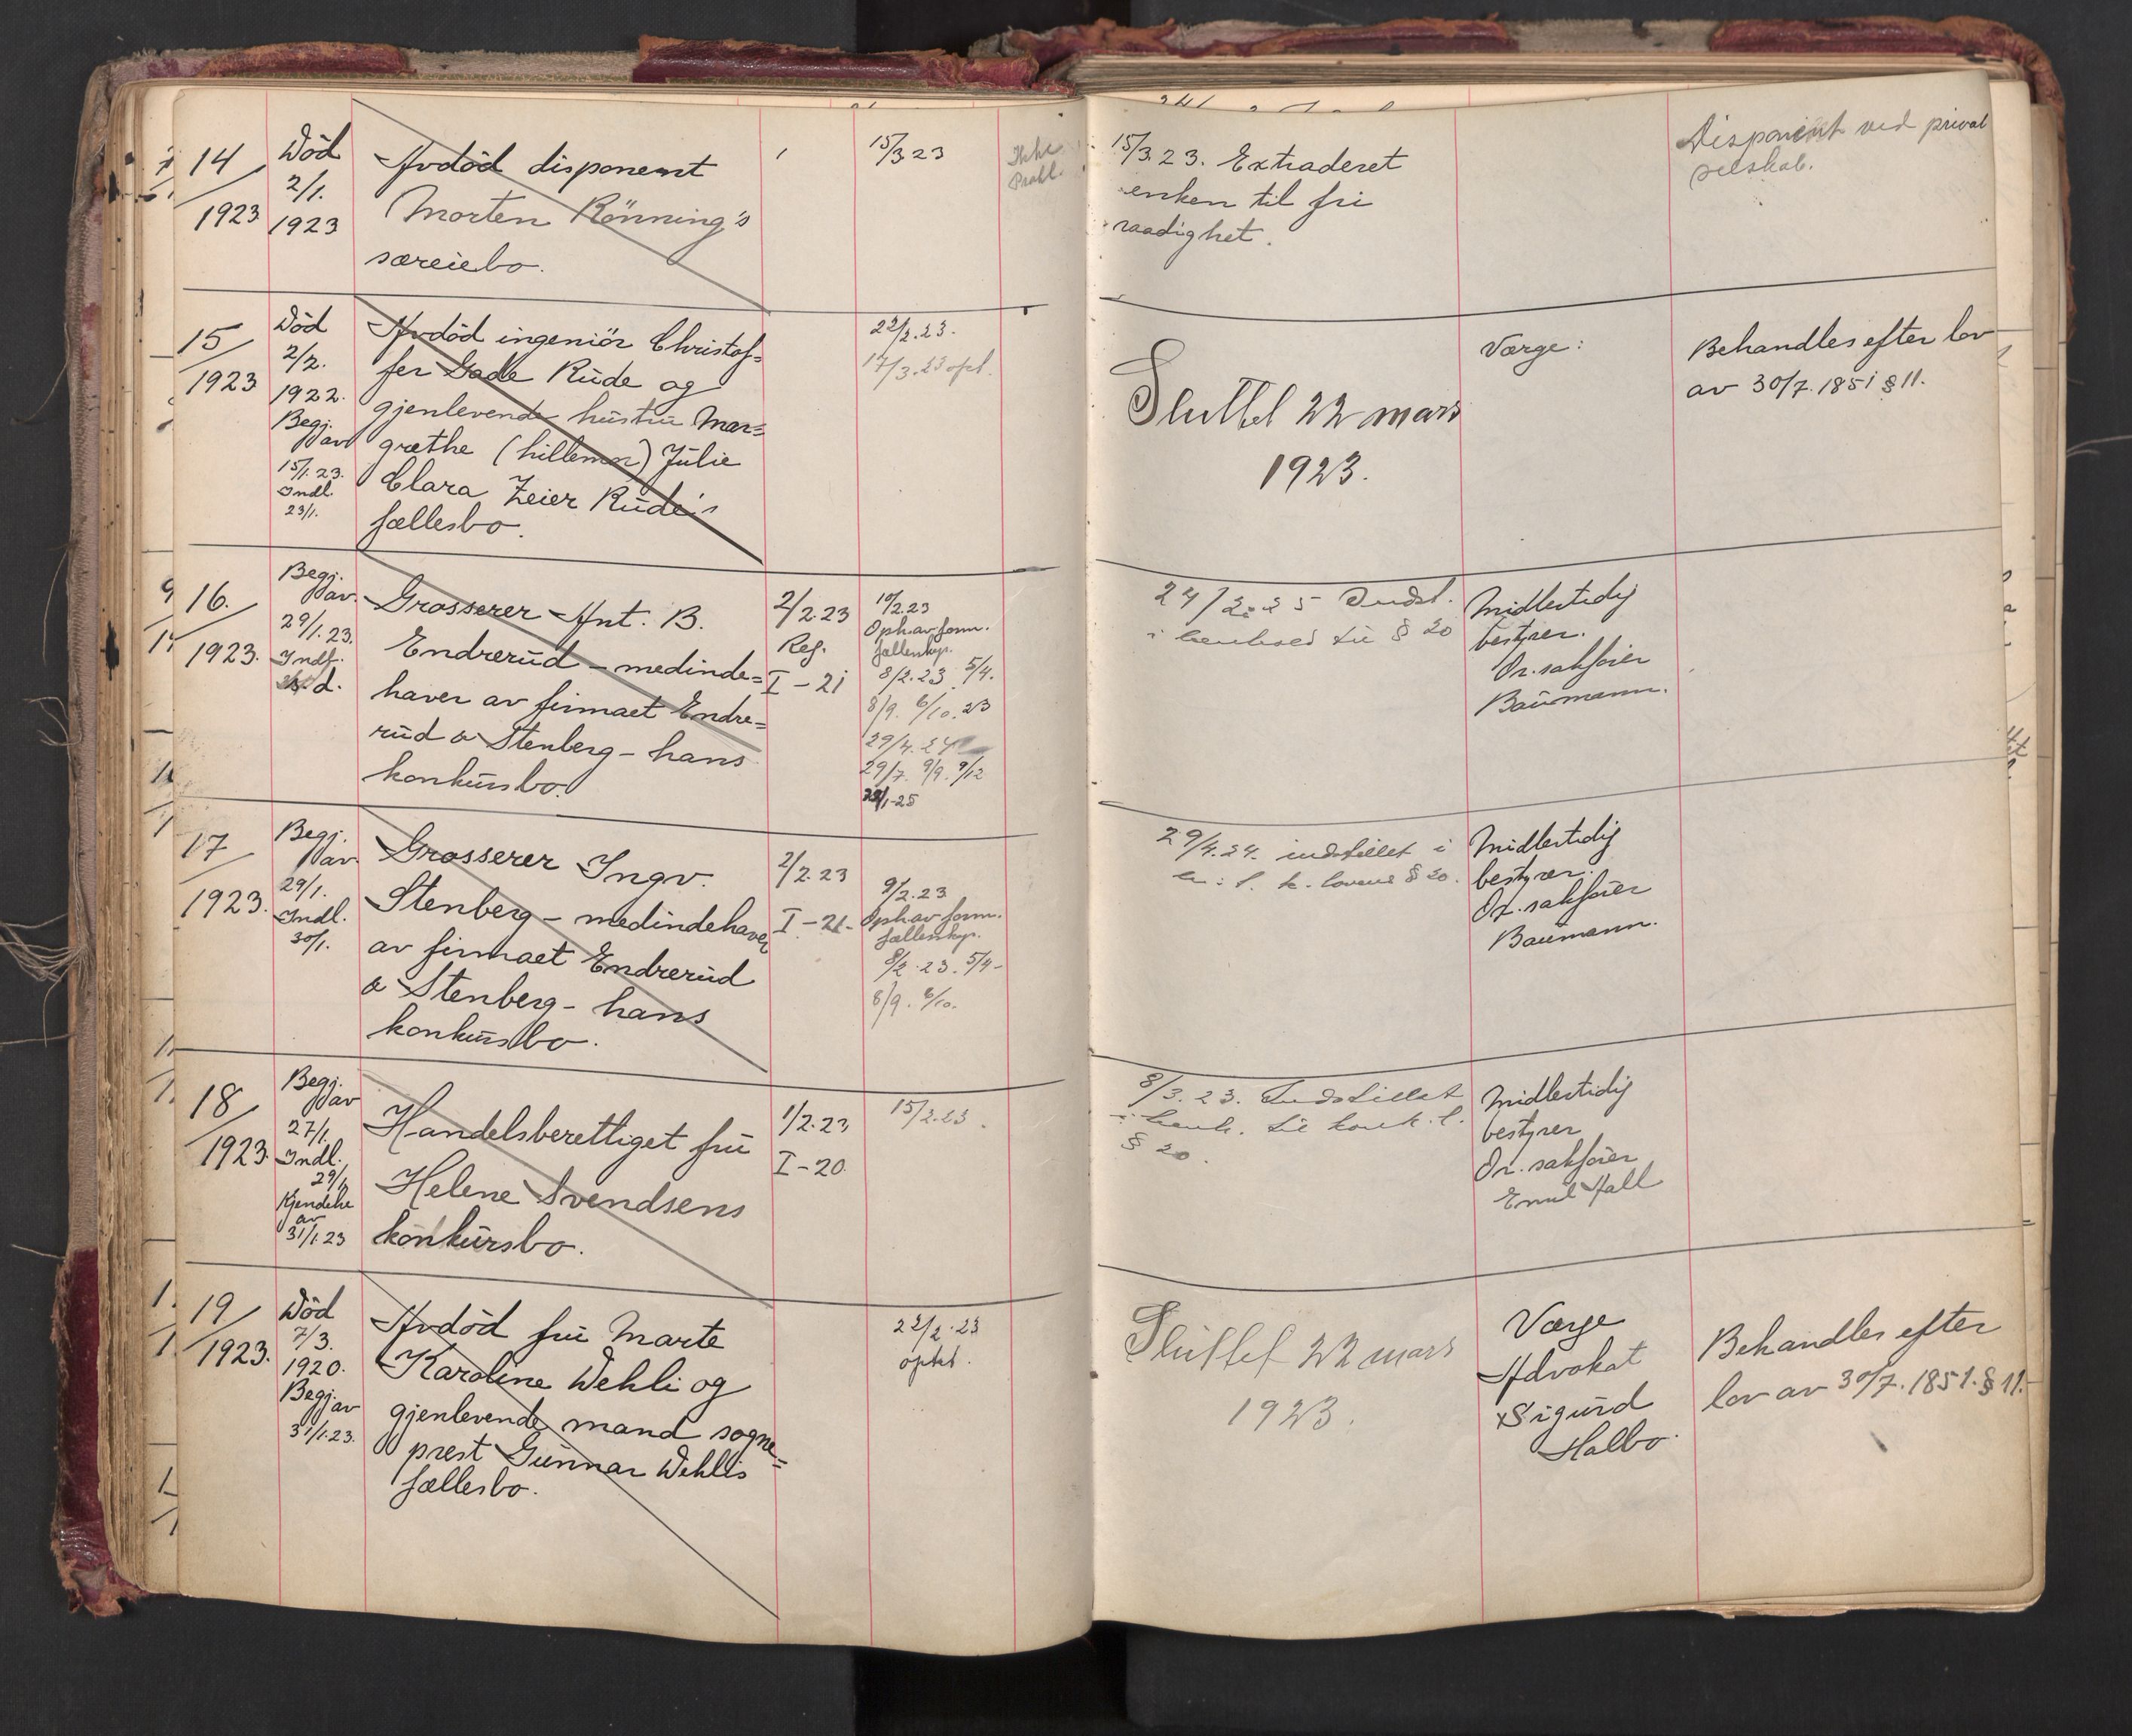 14
1923
Död
2/1.
1923
Avdöd disponent
Morten Rönning's
særeiebo.
15/3 23
Ikke
Prokl.
15/3. 23. Extraderet
enken til fri
raadighet.
Disponent ved privat
selskab.
15
1923
Död
2/2.
1922.
Begj.
av
15/1. 23.
Indl.
23/1.
Avdöd ingeniör Christof=
fer Gade Rude og
gjenlevende hustru Mar=
grethe (hillemn) Julie
Clara Zeier Rude's
fællesbo.
22/2. 23.
17/3. 23 opt.
Sluttet 22 mars
1923.
Værge:
Behandles efter lov
av 30/7. 1851 § 11.
16.
1923.
Begj.
av.
29/1. 23.
Indl.
s. d.
Grosserer Ant. B.
Endrerud – medinde=
haver av firmaet Endre=
rud & Stenberg – hans
konkursbo.
2/2. 23
Reg.
I – 21
10/2. 23
Oph. av form.
fællesskp.
8/2. 23. 5/4.
8/9. 6/10. 23
29/4. 24
29/7. 9/9. 9/12
1. 25
24/2. 25 Indst.
i henhold til § 20
Midlertidig
bestyrer.
Or. sakförer
Baumann.
17
1923.
Begj.
av
29/1.
Indl.
30/1.
Grosserer Ingv.
Stenberg – medindehaver
av firmaet Endrerud
& Stenberg – hans
konkursbo.
2/2. 23
I – 21 –
9/2. 23
Oph av form.
fællesskp.
8/2. 23. 5/4 –
8/9. 6/10.
29/4. 24. indstillet i
h. t. k. lovens § 20.
Midlertidig
bestyrer.
Or. sakförer
Baumann.
18
1923.
Begj.
av
27/1.
Indl.
29/1
Kjendelse
av
31/1. 23
Handelsberettiget fru
Helene Svendsens
konkursbo.
1/2. 23
I – 20.
15/2. 23.
8/3. 23. Indstillet
i henh. til konk. l.
§ 20.
Midlertidig
bestyrer
Or. sakförer
Emil Hall
19
1923.
Död
7/3.
1920.
Begj. av
31/1. 23.
Avdöd fru Marte
Karoline Wehli og
gjenlevende mand sogne=
prest Gunnar Wehlis
fællesbo.
22/2. 23
optat.
Sluttet 22 mars
1923.
Værge
Advokat
Sigurd
Halbo.
Behandles efter
lov av 30/7. 1851. § 11.